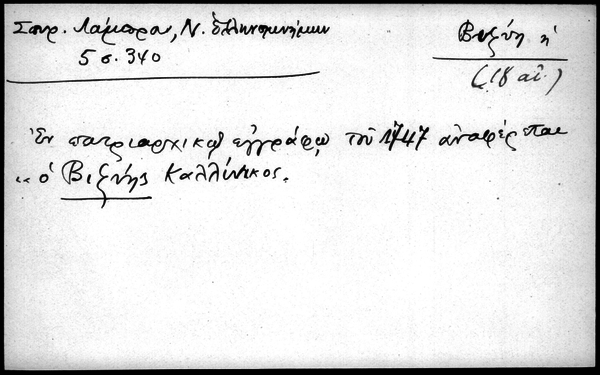 Σπυρ. Λάμπρου, Ν. Ἑλληνομνήμων
5 σ. 340
Βιζύη ἡ
(18 αἰ.)
Ἐν πατριαρχικῷ ἐγγράφῳ τοῦ 1747 ἀναφέρεται
"ὁ Βιζύης Καλλίνικος.